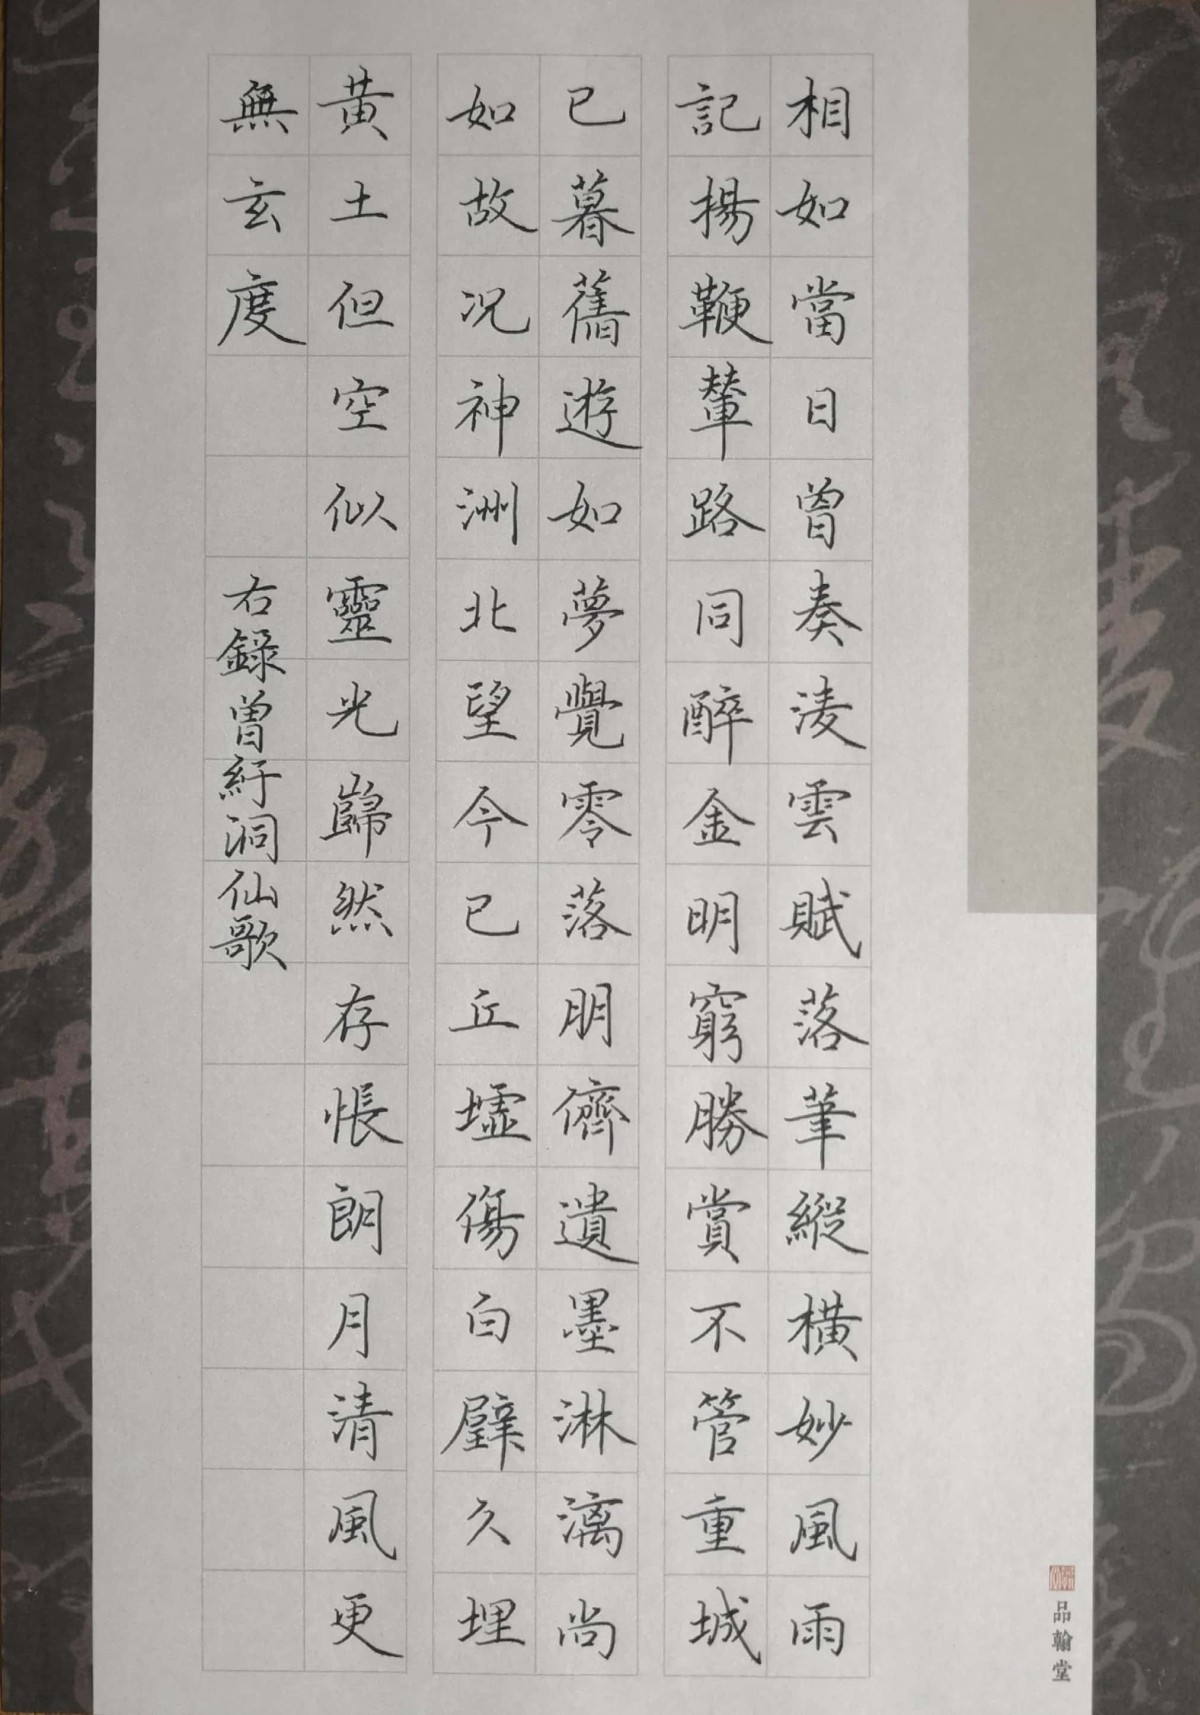 相如當日曾奏淩雲賦落筆縱橫妙風雨
記揚鞭輦路同醉金明窮勝賞不管重城
已暮舊遊如夢覺零落朋儕遺墨淋漓尚
如故况神洲北望今已丘墟傷白璧久埋
黃土但空似靈光巋然存悵朗月清風更
無玄度
右錄曾紆洞仙歌
品翰堂